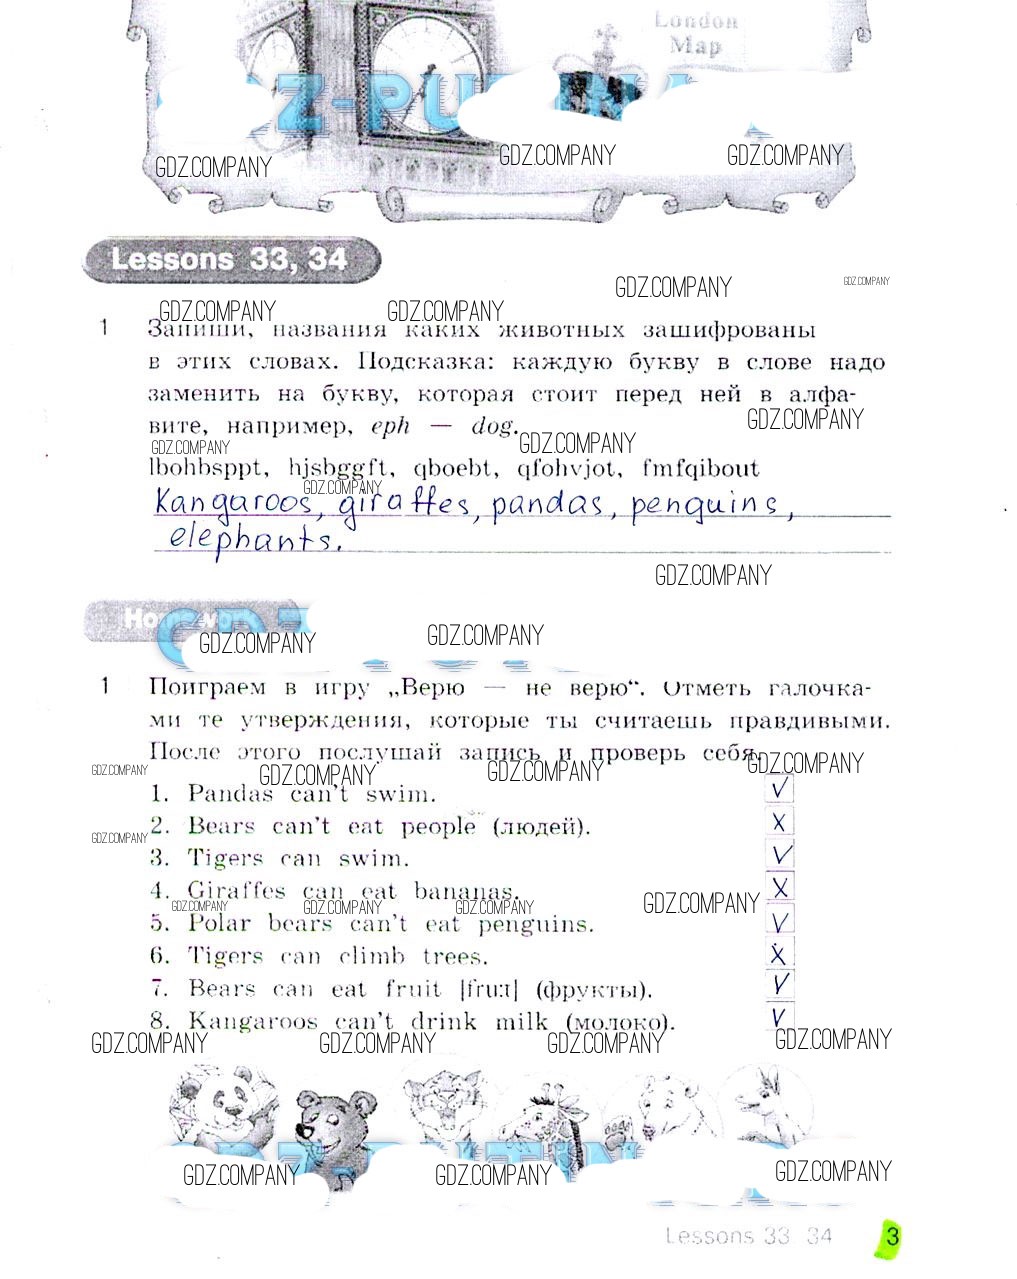 London
Map
GDZ.COMPANY GDZ.COMPANY GDZ.COMPANY
Lessons 33, 34
GDZ.COMPANY GDZ.COMPANY GDZ.COMPANY GDZ.COMPANY
1 Запиши, названия каких животных зашифрованы
в этих словах. Подсказка: каждую букву в слове надо
заменить на букву, которая стоит перед ней в алфа-
вите, например, eph — dog.
GDZ.COMPANY GDZ.COMPANY GDZ.COMPANY
lbohbsppt, hjsbggft, qboebt, qfohvjot, fmfqibout
GDZ.COMPANY
Kangaroos, giraffes, pandas, penguins,
elephants.
GDZ.COMPANY
Homework
GDZ.COMPANY GDZ.COMPANY
1 Поиграем в игру „Верю — не верю“. Отметь галочка-
ми те утверждения, которые ты считаешь правдивыми.
После этого послушай запись и проверь себя.
GDZ.COMPANY GDZ.COMPANY GDZ.COMPANY GDZ.COMPANY
1. Pandas can't swim. V
2. Bears can't eat people (людей). X
GDZ.COMPANY
3. Tigers can swim. V
4. Giraffes can eat bananas. X
GDZ.COMPANY GDZ.COMPANY GDZ.COMPANY GDZ.COMPANY
5. Polar bears can't eat penguins. V
6. Tigers can climb trees. X
7. Bears can eat fruit |fru:t| (фрукты). V
8. Kangaroos can't drink milk (молоко). V
GDZ.COMPANY GDZ.COMPANY GDZ.COMPANY GDZ.COMPANY
GDZ.COMPANY GDZ.COMPANY GDZ.COMPANY
Lessons 33, 34 3